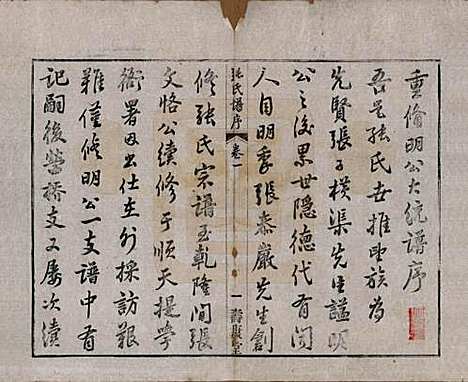 重脩明公大統譜序
吾邑張氏世推望族為
先賢張子橫渠先生諡明
公之後累世隱德代有聞
張氏譜序 卷一 一
人自明季張泰巖先生創
修張氏宗譜至乾隆間張
文恪公續修于順天提學
衙署因出仕在外採訪艱
難僅修明公一支譜中有
記嗣後營橋支又屢次續